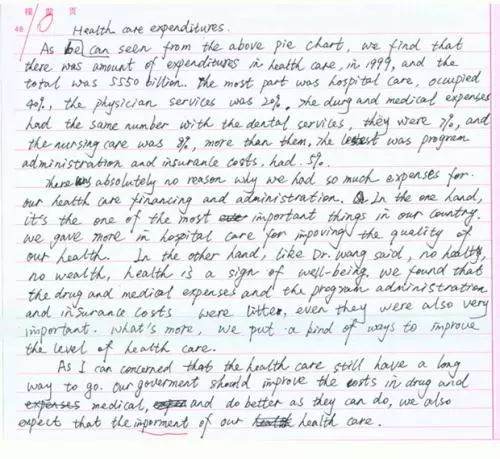 模 监 页
48 10
Health care expenditures.
As be can seen from the above pie chart, we find that
there was amount of expenditures in health care, in 1999, and the
total was 5550 billion. The most part was hospital care, occupied
40%, the physician services was 20%. The durg and medical expenses
had the same number with the dental services, they were 7%, and
the nursing care was 8%, more than them, the lestest was program
administration and insurance costs, had 5%.
There was absolutely no reason why we had so much expenses for
our health care financing and administration. In the one hand,
it's the one of the most important things in our country.
we gave more in hospital care for impoving the quality of
our health. In the other hand, like Dr. Wang said, no healty,
no wealth, health is a sign of well-being. we found that
the drug and medical expenses and the program administration
and insurance costs were litter, even they were also very
important. what's more, we put a kind of ways to improve
the level of health care.
As I can concerned that the health care still have a long
way to go. Our goverment should improve the costs in drug and
medical, and do better as they can do, we also
expect that the imporment of our health care.